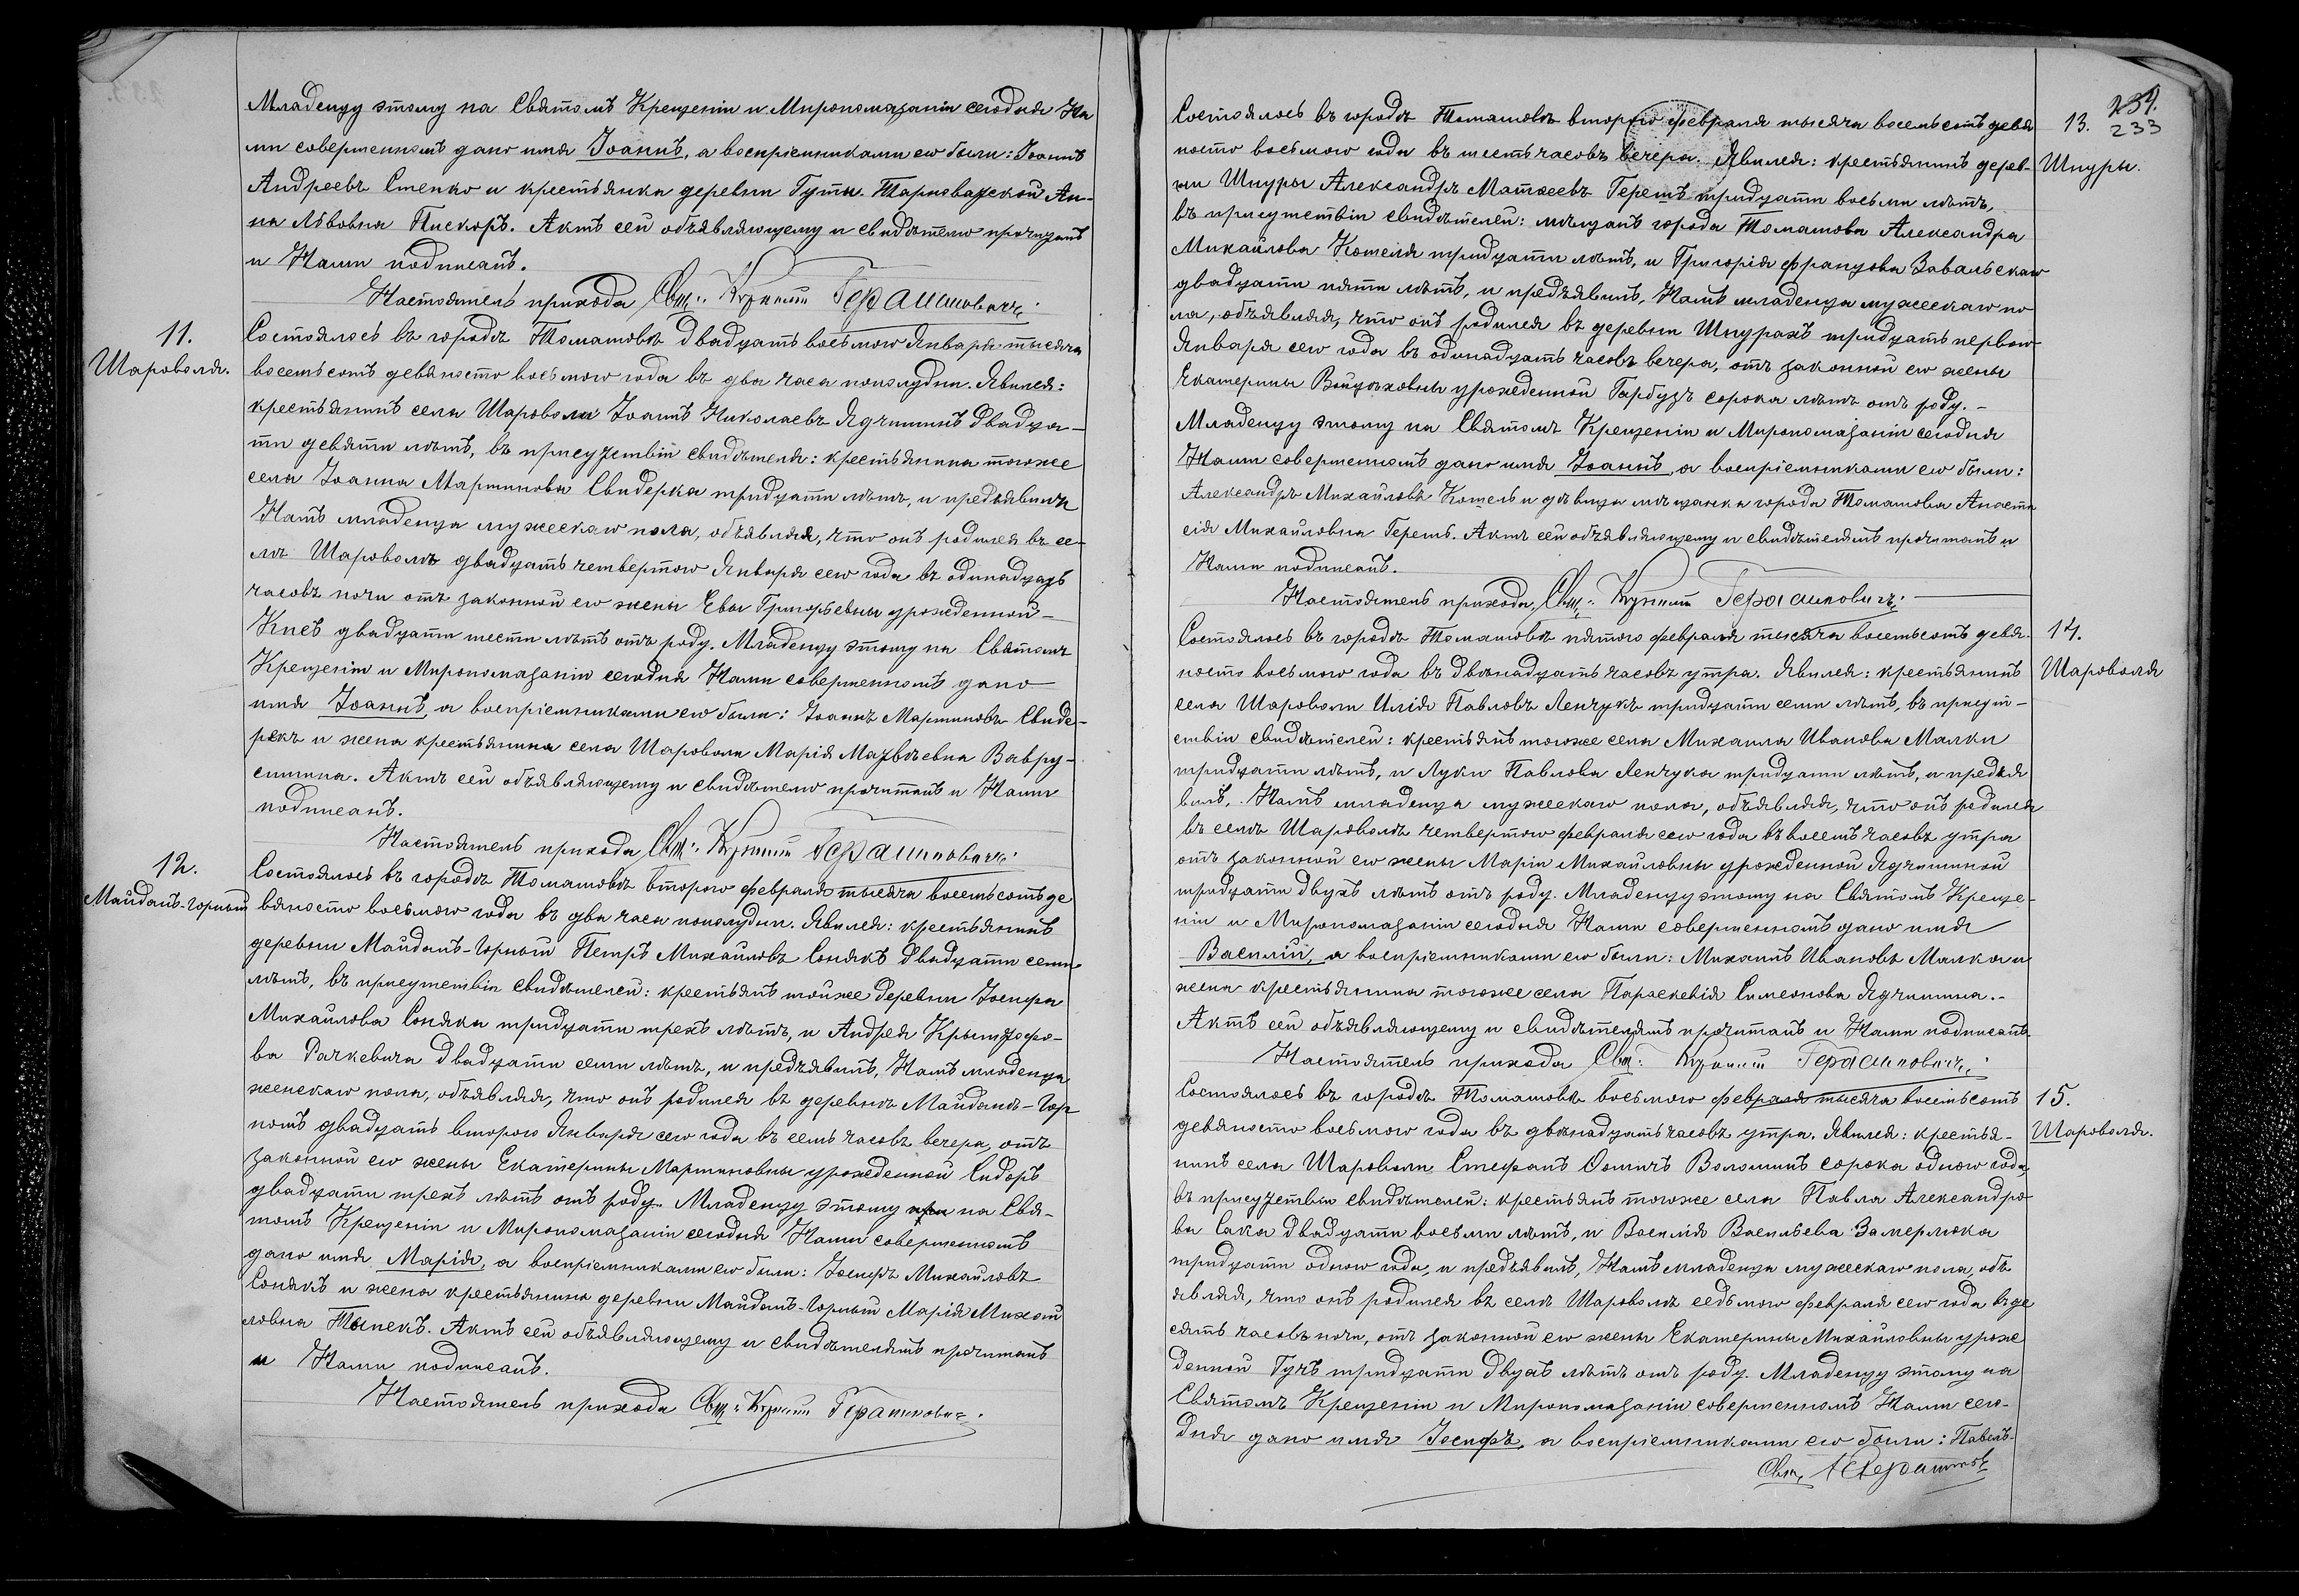 Младенцу этому на Святомъ Крещеніи и Миропомазаніи сегодня На
ми совершенномъ дано имя Іоаннъ, а воспріемниками его были: Іоаннъ
Андреевъ Стенко и крестьянка деревни Гуты-Тарноватской Ан-
на Львовна Пискоръ. Актъ сей объявляющему и свидѣтелю прочитанъ
и Нами подписанъ.
Настоятель прихода Свщ: Герасимовичъ.
11.
Шароволя.
Состоялось въ городѣ Томашовѣ двадцать восьмого Января тысяча
восемьсотъ девяносто восьмого года въ два часа пополудни. Явился:
крестьянинъ села Шароволи Іоаннъ Николаевъ Ядчишинъ двадца-
ти девяти лѣтъ, въ присутствіи свидѣтеля: крестьянина тогоже
села Іоанна Мартинова Свидерка тридцати лѣтъ, и предъявилъ
Намъ младенца мужескаго пола, объявляя, что онъ родился въ се-
лѣ Шароволѣ двадцать четвертого Января сего года въ одинадцать
часовъ ночи отъ законной его жены Евы Григорьевны урожденной
Кисъ двадцати шести лѣтъ отъ роду. Младенцу этому на Святомъ
Крещеніи и Миропомазаніи сегодня Нами совершенномъ дано
имя Іоаннъ, а воспріемниками его были: Іоаннъ Мартиновъ Свиде-
рекъ и жена крестьянина села Шароволи Марія Матвѣевна Вавру-
сишина. Актъ сей объявляющему и свидѣтелю прочитанъ и Нами
подписанъ.
Настоятель прихода Свщ: Герасимовичъ.
12.
Майданъ-Горный
Состоялось въ городѣ Томашовѣ второго февраля тысяча восемьсотъ де
вяносто восьмого года въ два часа пополудни. Явился: крестьянинъ
деревни Майданъ-Горный Петръ Михайловъ Сонякъ двадцати семи
лѣтъ, въ присутствіи свидѣтелей: крестьянъ тойже деревни Іосифа
Михайлова Соняка тридцати трехъ лѣтъ, и Андрея Крыштофо-
ва Рачкевича двадцати семи лѣтъ, и предъявилъ, Намъ младенца
женскаго пола, объявляя, что онъ родился въ деревнѣ Майданѣ-Гор
номъ двадцать второго Января сего года въ семь часовъ вечера, отъ
законной его жены Екатерины Мартиновны урожденной Сидоръ
двадцати трехъ лѣтъ отъ роду. Младенцу этому при на Свя-
томъ Крещеніи и Миропомазаніи сегодня Нами совершенномъ
дано имя Марія, а воспріемниками его были: Іосифъ Михайловъ
Сонякъ и жена крестьянина деревни Майданъ-Горный Марія Михай
ловна Тыпекъ. Актъ сей объявляющему и свидѣтелямъ прочитанъ
и Нами подписанъ.
Настоятель прихода Свщ: Герасимовичъ.
234.
233
13.
Шнуры.
Состоялось въ городѣ Томашовѣ второго февраля тысяча восемьсотъ девя
носто восьмого года въ шесть часовъ вечера. Явился: крестьянинъ дерев-
ни Шнуры Александръ Матѳеевъ Герешъ тридцати восьми лѣтъ,
въ присутствіи свидѣтелей: мѣщанъ города Томашова Александра
Михайлова Кошеля тридцати лѣтъ, и Григорія Францова Завальскаго
двадцати пяти лѣтъ, и предъявилъ, Намъ младенца мужескаго по
ла, объявляя, что онъ родился въ деревни Шнурахъ тридцать первого
Января сего года въ одинадцать часовъ вечера, отъ законной его жены
Екатерины Войцѣховны урожденной Гарбузъ сорока лѣтъ отъ роду.-
Младенцу этому на Святомъ Крещеніи и Миропомазаніи сегодня
Нами совершенномъ дано имя Іоаннъ, а воспріемниками его были:
Александръ Михайловъ Кошель и дѣвица мѣщанка города Томашова Анаста
сія Михайловна Герешъ. Актъ сей объявляющему и свидѣтелямъ прочитанъ и
Нами подписанъ.
Настоятель прихода, Свщ: Герасимовичъ.
14.
Шароволя
Состоялось въ городѣ Томашовѣ пятого февраля тысяча восемьсотъ девя-
носто восьмого года въ двѣнадцать часовъ утра. Явился: крестьянинъ
села Шароволи Илія Павловъ Ленчукъ тридцати семи лѣтъ, въ присут-
ствіи свидѣтелей: крестьянъ тогоже села Михаила Иванова Малки
тридцати лѣтъ, и Луки Павлова Ленчука тридцати лѣтъ, и предъя
вилъ, Намъ младенца мужескаго пола, объявляя, что онъ родился
въ селѣ Шароволѣ четвертого февраля сего года въ восемь часовъ утра
отъ законной его жены Маріи Михайловны урожденной Ядчишиной
тридцати двухъ лѣтъ отъ роду. Младенцу этому на Святомъ Креще-
ніи и Миропомазаніи сегодня Нами совершенномъ дано имя
Василій, а воспріемниками его были: Михаилъ Ивановъ Малка и
жена крестьянина тогоже села Параскевія Симеонова Ядчишина.-
Актъ сей объявляющему и свидѣтелямъ прочитанъ и Нами подписанъ.
Настоятель прихода Свщ: Герасимовичъ.
15.
Шароволя.
Состоялось въ городѣ Томашовѣ восьмого февраля тысяча восемьсотъ
девяносто восьмого года въ двѣнадцать часовъ утра. Явился: крестья-
нинъ села Шароволи Стефанъ Ѳомичъ Волошинъ сорока одного года,
въ присутствіи свидѣтелей: крестьянъ тогоже села Павла Александро-
ва Сака двадцати восьми лѣтъ, и Василія Васильева Замерлюка
тридцати одного года, и предъявилъ, Намъ младенца мужескаго пола, объ
являя, что онъ родился въ селѣ Шароволѣ седьмого февраля сего года въ де
сять часовъ ночи, отъ законной его жены Екатерины Михайловны урож
денной Гучъ тридцати двухъ лѣтъ отъ роду. Младенцу этому на
Святомъ Крещеніи и Миропомазаніи совершенномъ Нами сего-
дня дано имя Іосифъ, а воспріемниками его были: Павелъ-
Свщ.